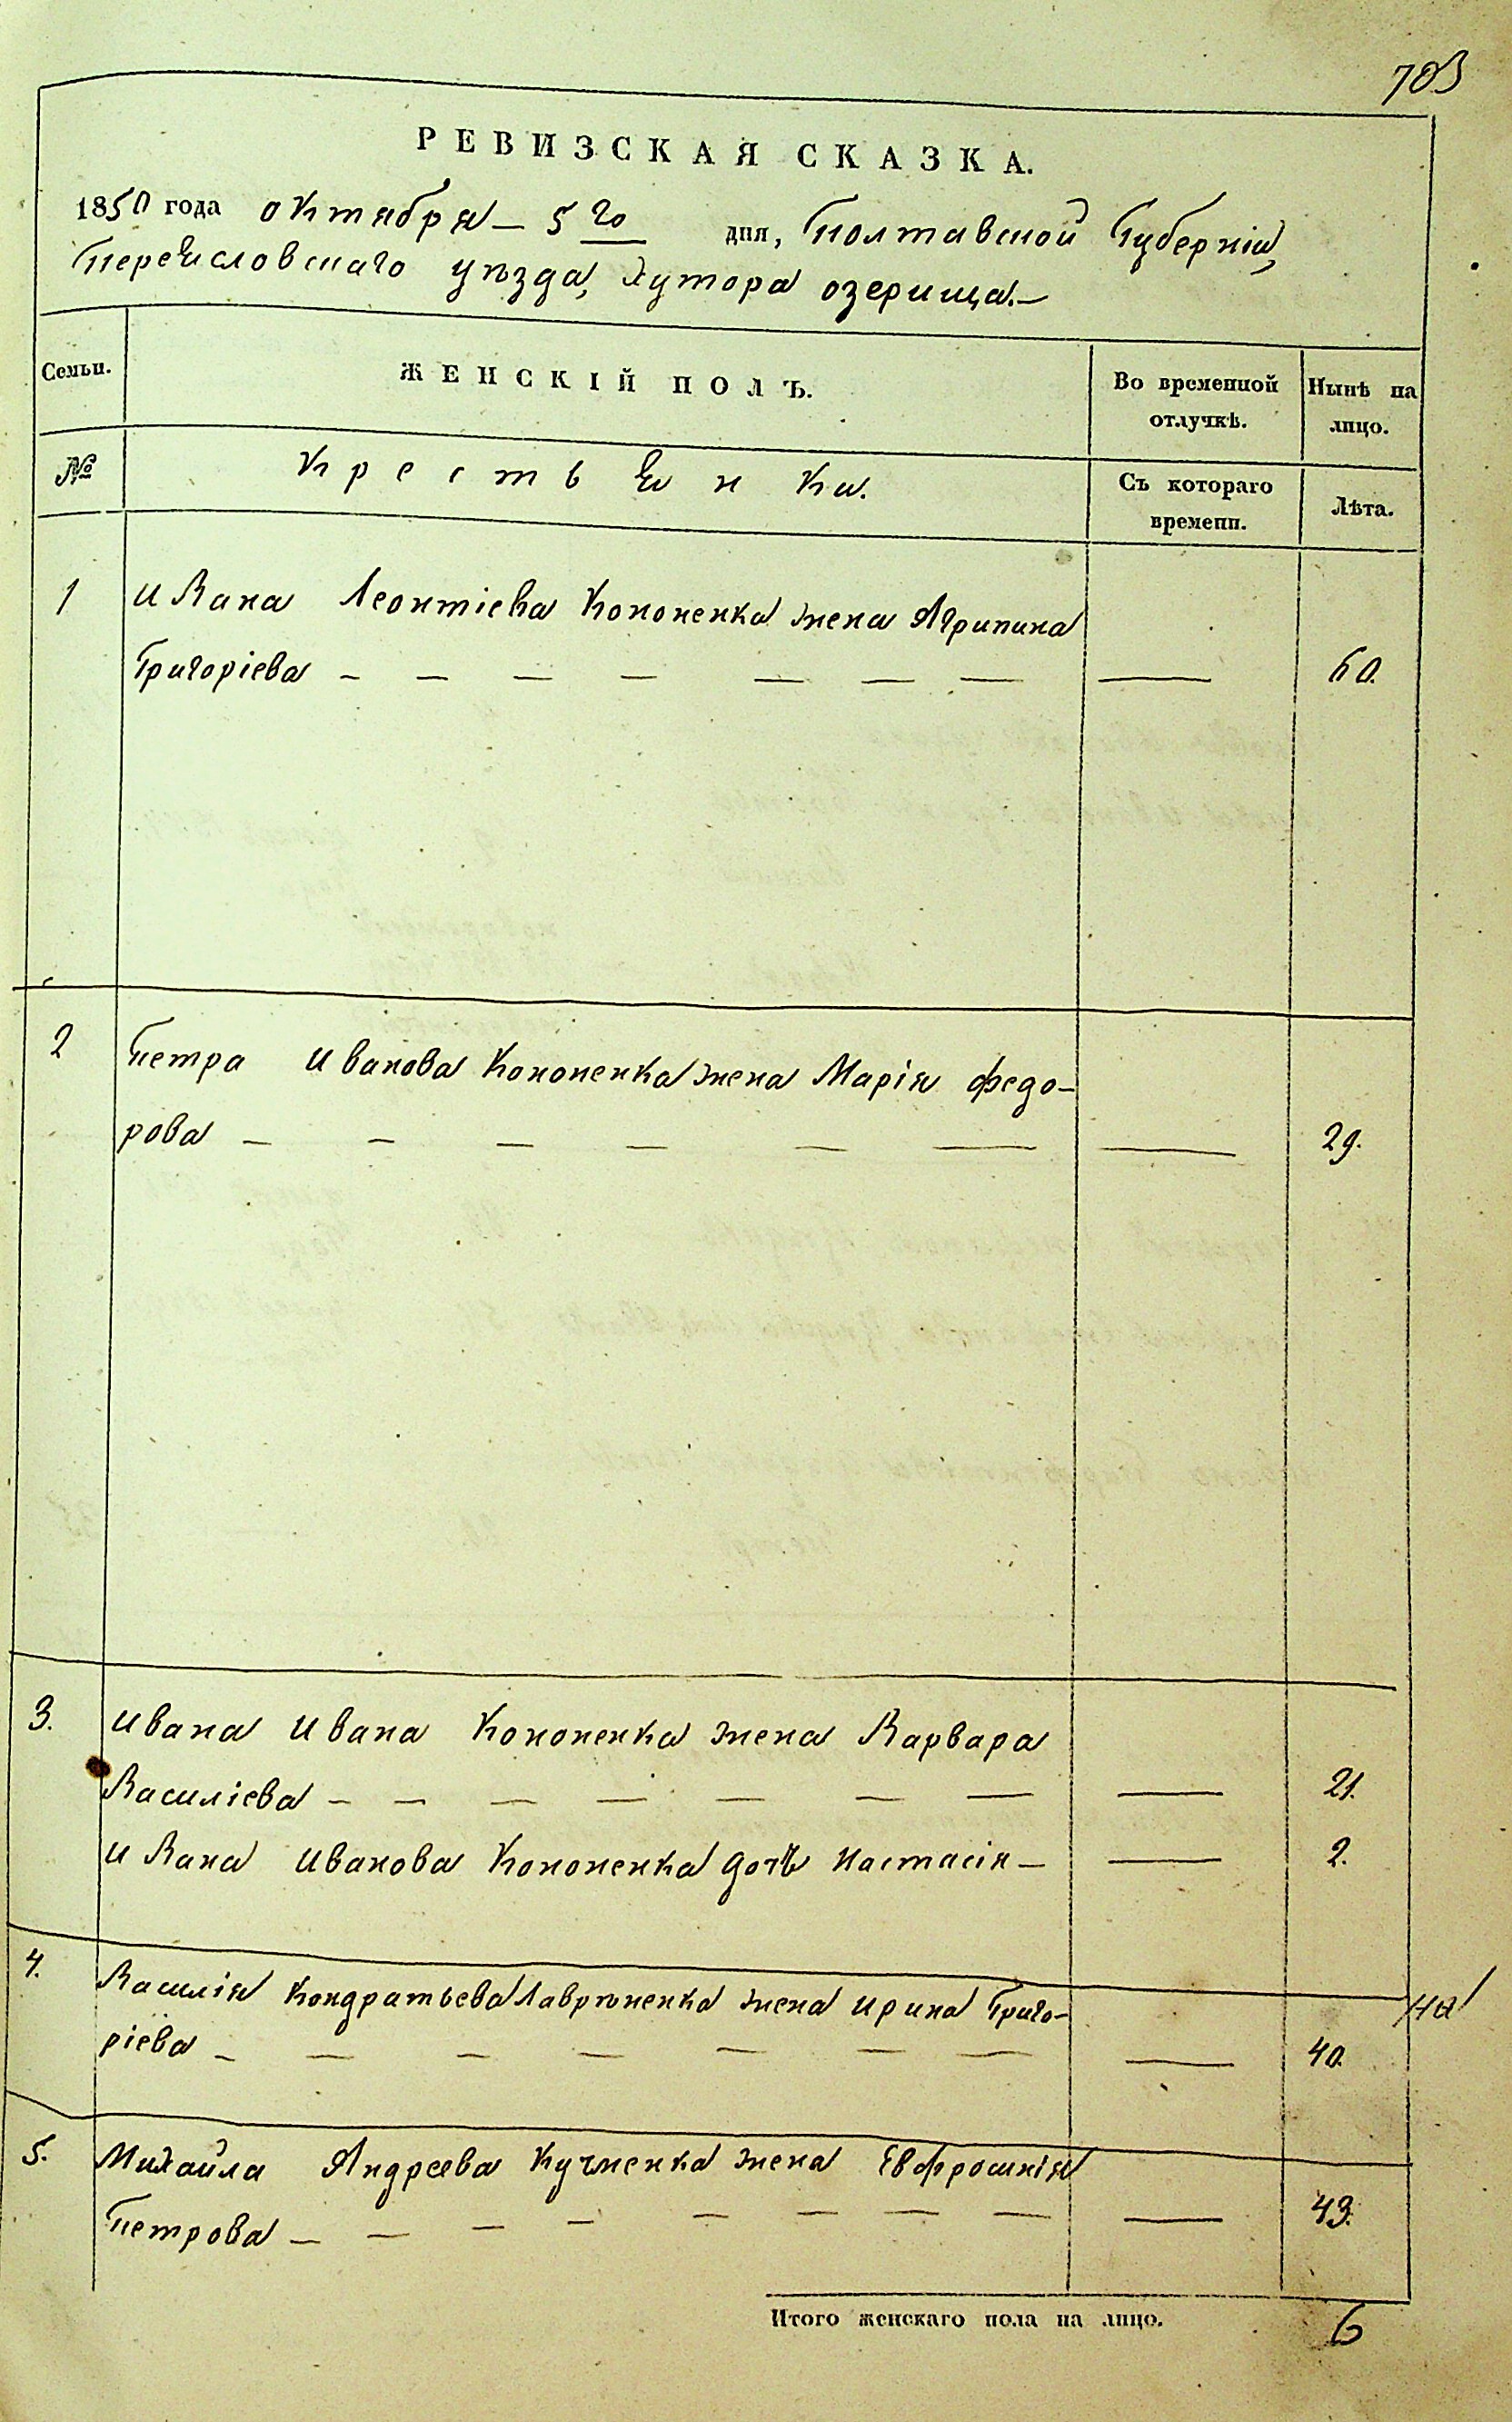 703
РЕВИЗСКАЯ СКАЗКА.
1850 года октября 5го дня, Полтавской Губерніи,
Переясловскаго уѣзда, хутора озерища.
Семьи.
ЖЕНСКІЙ ПОЛЪ.
Во временной отлучкѣ.
Нынѣ на лицо.
№
Крестьянки.
Съ котораго времени.
Лѣта.
1 Ивана Леонтіева Кононенка жена Агрипина
Григоріева — — — — — — — — 60.
2 Петра Иванова Кононенка жена Марія федо-
рова — — — — — — — 29.
3. Ивана Ивана Кононенка жена Варвара
Василіева — — — — — — — — 21.
Ивана Иванова Кононенка дочь Настасія — — 2.
4. Василія Кондратьева Лавриненка жена Ирина Григо-
ріева — — — — — — — — 40.
5. Михайла Андреева Кучменка жена Евфросинія
Петрова — — — — — — — — — 43.
Итого женскаго пола на лицо. 6